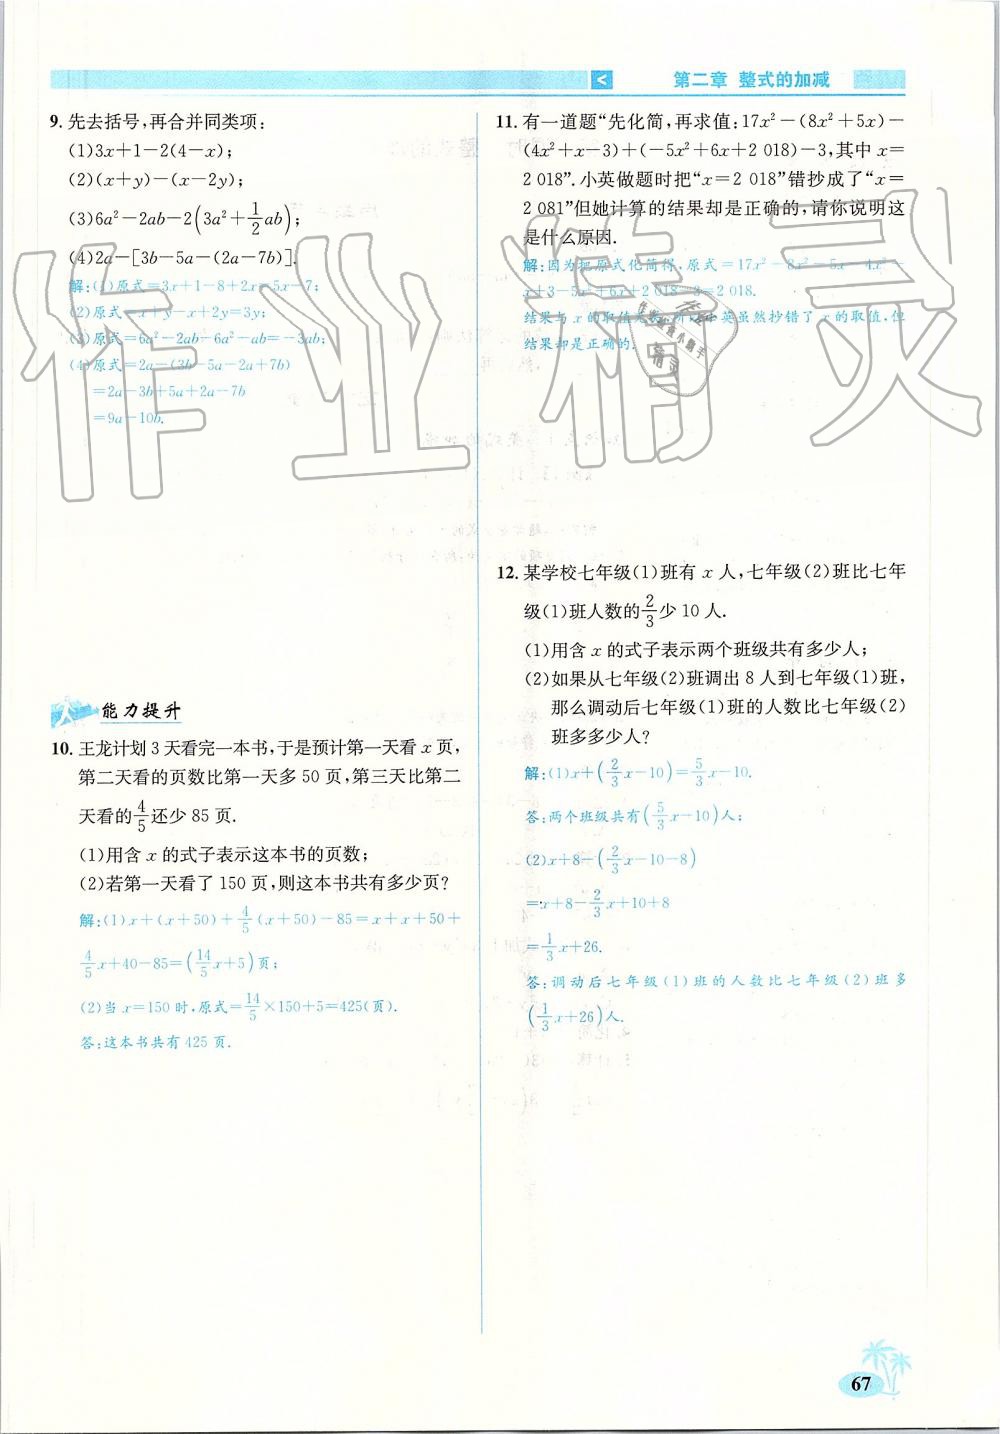 第二章 整式的加减
9. 先去括号,再合并同类项:
(1)3x+1-2(4-x);
(2)(x+y)-(x-2y);
(3)6a²-2ab-2(3a²+1/2ab);
(4)2a-[3b-5a-(2a-7b)].
解:(1)原式=3x+1-8+2x=5x-7;
(2)原式=x+y-x+2y=3y;
(3)原式=6a²-2ab-6a²-ab=-3ab;
(4)原式=2a-(3b-5a-2a+7b)
=2a-3b+5a+2a-7b
=9a-10b.
能力提升
10. 王龙计划3天看完一本书,于是预计第一天看x页,
第二天看的页数比第一天多50页,第三天比第二
天看的4/5还少85页.
(1)用含x的式子表示这本书的页数;
(2)若第一天看了150页,则这本书共有多少页?
解:(1)x+(x+50)+4/5(x+50)-85=x+x+50+
4/5x+40-85=(14/5x+5)页;
(2)当x=150时,原式=14/5×150+5=425(页).
答:这本书共有425页.
11. 有一道题“先化简,再求值:17x²-(8x²+5x)-
(4x²+x-3)+(-5x²+6x+2 018)-3,其中x=
2 018”.小英做题时把“x=2 018”错抄成了“x=
2 081”但她计算的结果却是正确的,请你说明这
是什么原因.
解:因为把原式化简得,原式=17x²-8x²-5x-4x²-
x+3-5x²+6x+2 018-3=2 018.
结果与x的取值无关,所以小英虽然抄错了x的取值,但
结果却是正确的.
12. 某学校七年级(1)班有x人,七年级(2)班比七年
级(1)班人数的2/3少10人.
(1)用含x的式子表示两个班级共有多少人;
(2)如果从七年级(2)班调出8人到七年级(1)班,
那么调动后七年级(1)班的人数比七年级(2)
班多多少人?
解:(1)x+(2/3x-10)=5/3x-10.
答:两个班级共有(5/3x-10)人;
(2)x+8-(2/3x-10-8)
=x+8-2/3x+10+8
=1/3x+26.
答:调动后七年级(1)班的人数比七年级(2)班多
(1/3x+26)人.
67
作业精灵